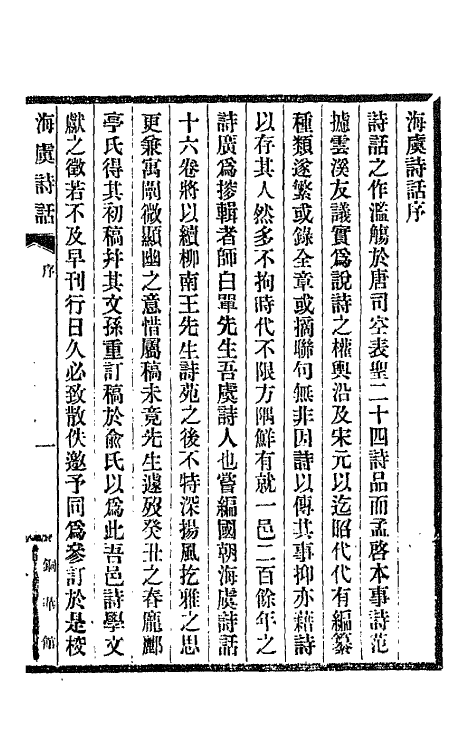 海虞詩話序
詩話之作濫觴於唐司空表聖二十四詩品而孟啓本事詩范
攄雲溪友議實爲說詩之權輿沿及宋元以迄昭代代有編纂
種類遂繁或錄全章或摘聯句無非因詩以傳其事抑亦藉詩
以存其人然多不拘時代不限方隅鮮有就一邑二百餘年之
詩廣爲摻輯者師白單先生吾虞詩人也嘗編國朝海虞詩話
十六卷將以續柳南王先生詩苑之後不特深揚風扢雅之思
更兼寓闡微顯幽之意惜屬稿未竟先生遽歿癸丑之春龐郦
亭氏得其初稿幷其文孫重訂稿於俞氏以爲此吾邑詩學文
獻之徵若不及早刊行日久必致散佚邀予同爲參訂於是棱
海虞詩話
序
一
銅華館